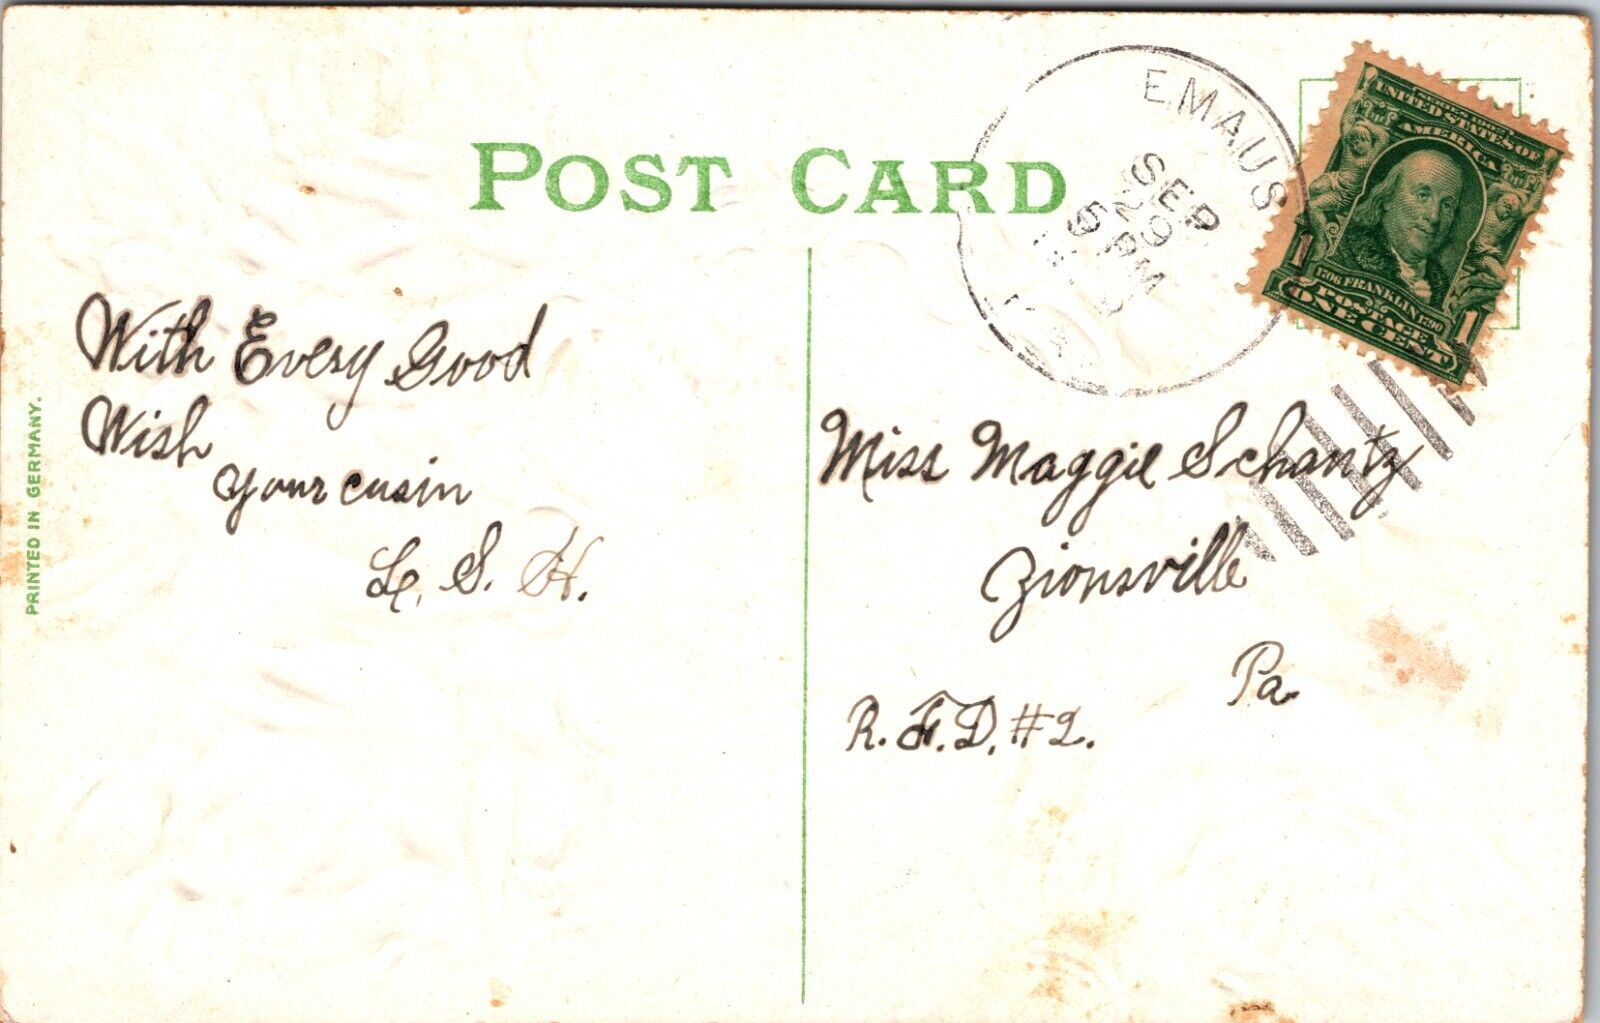 POST CARD
EMAUS
SEP
29
5 PM
SERIES 1902
UNITED STATES OF
AMERICA
1706 FRANKLIN 1790
1 POSTAGE 1
ONE CENT
With Every Good
Wish
your cusin
L. S. H.
Miss Maggie Schantz
Zionsville
Pa.
R.F.D. #2.
PRINTED IN GERMANY.